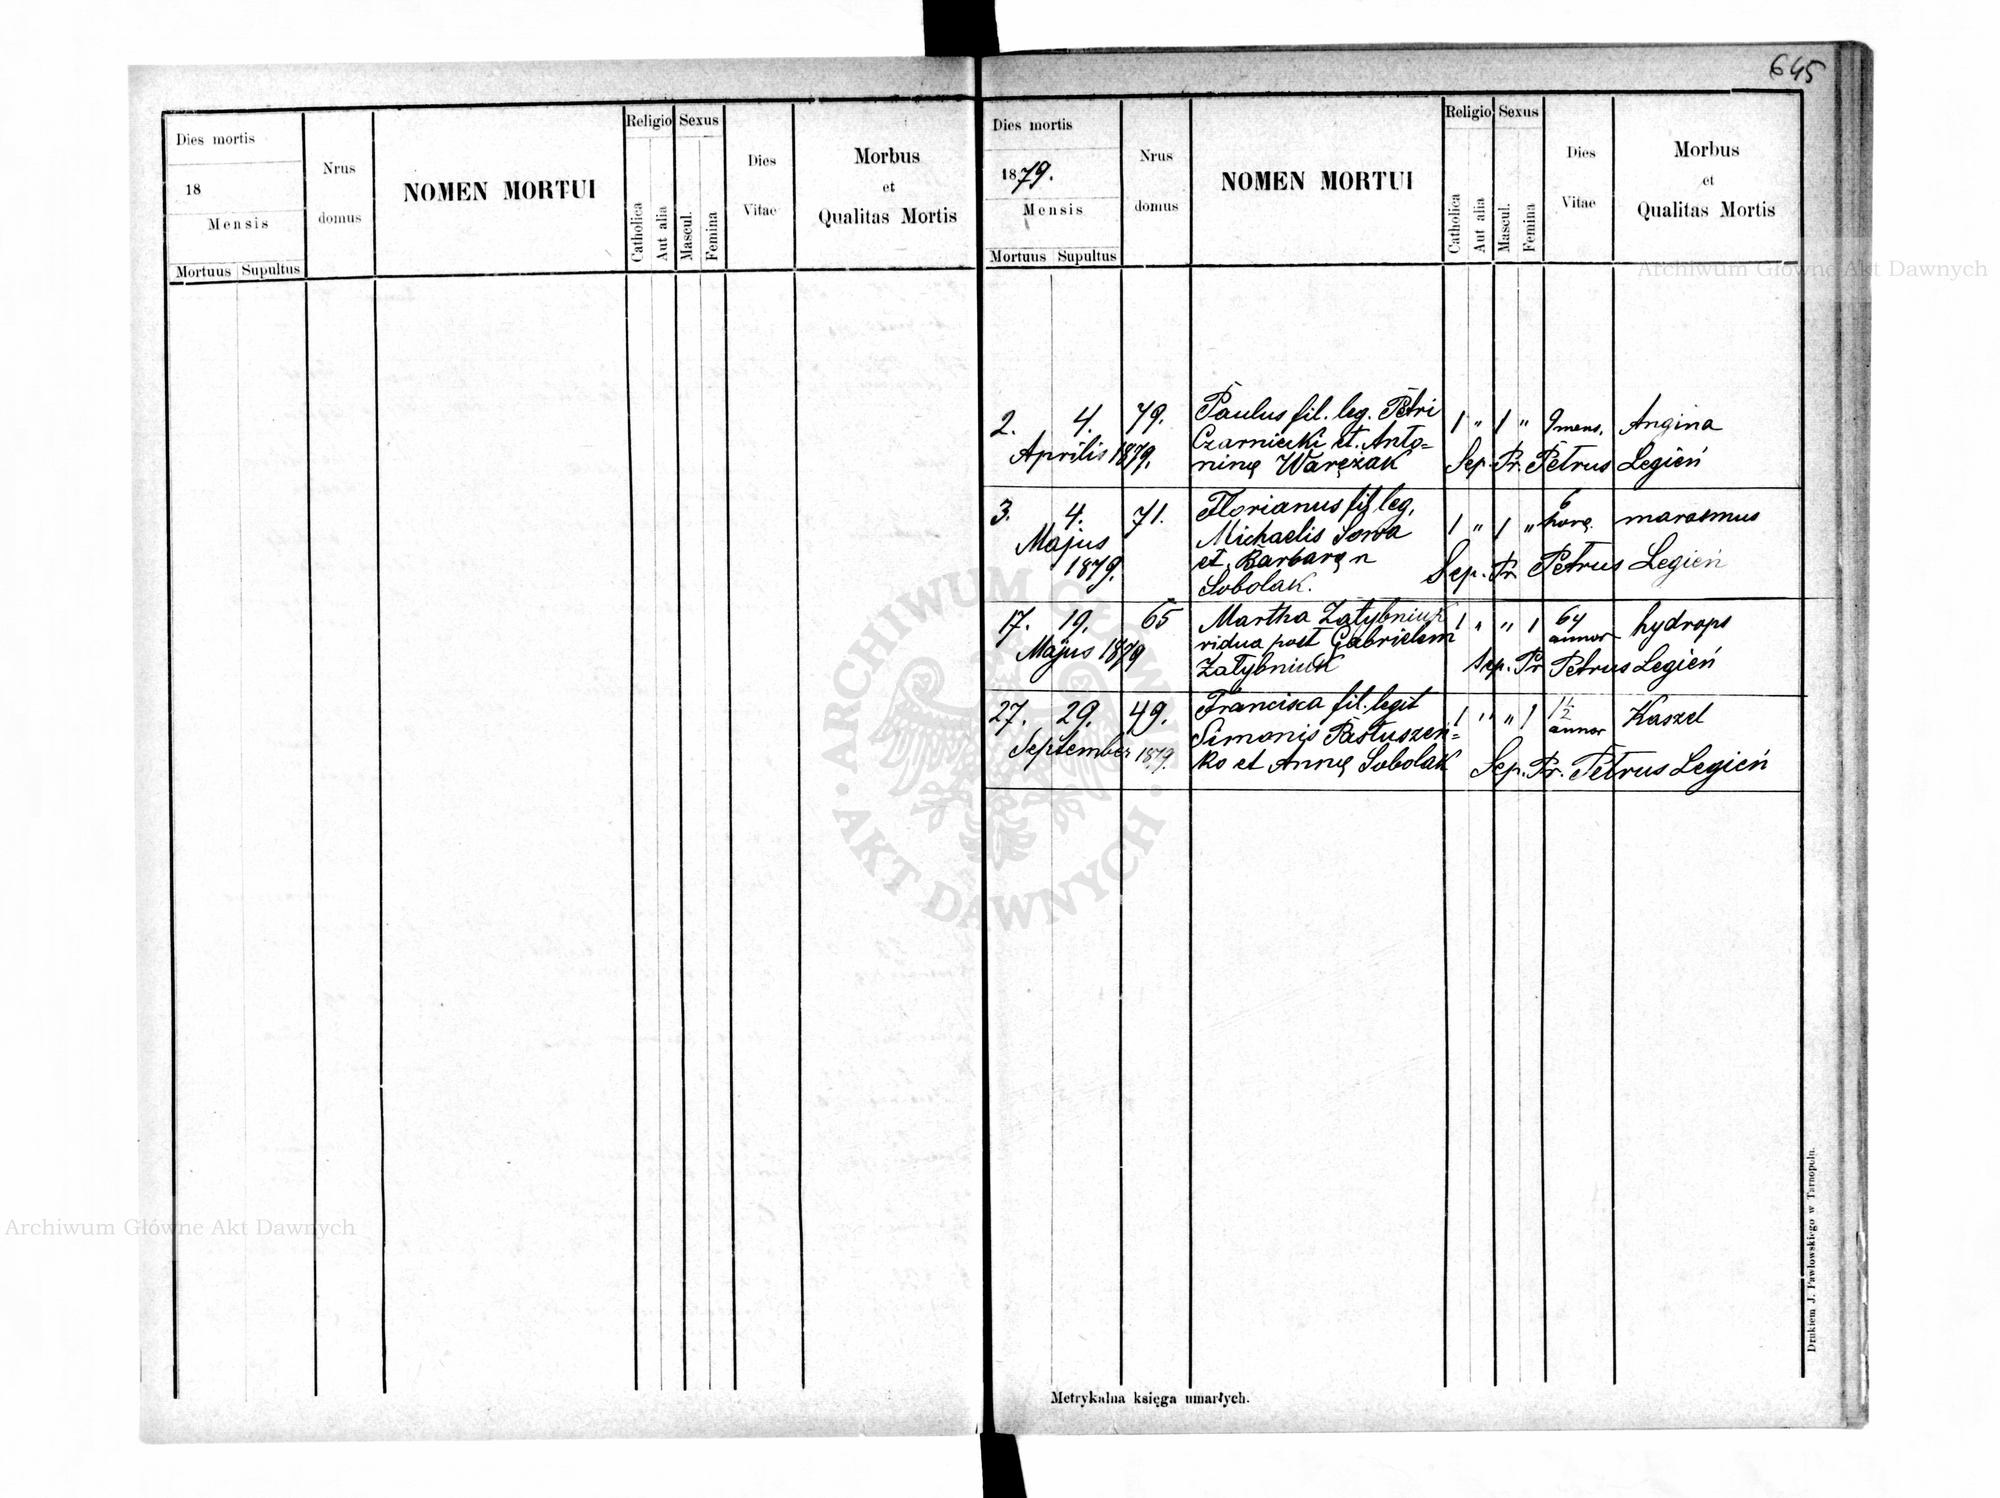 645
Dies mortis
18
Mensis
Mortuus Supultus
Nrus
domus
NOMEN MORTUI
Religio
Catholica
Aut alia
Sexus
Mascul.
Femina
Dies
Vitae
Morbus
et
Qualitas Mortis
Dies mortis
1879.
Mensis
Mortuus Supultus
Nrus
domus
NOMEN MORTUI
Religio
Catholica
Aut alia
Sexus
Mascul.
Femina
Dies
Vitae
Morbus
et
Qualitas Mortis
2. 4. 79. Paulus fil. leg. Petri 1 " 1 " 9 mens. Angina
Czarniecki et Anto=
Aprilis 1879. ninę Warężak Sep. Pr. Petrus Legień
3. 4. 71. Florianus fil leg. 1 " 1 " 6 horę marasmus
Majus Michaelis Sowa
1879. et Barbarę n Sep. Pr Petrus Legień
Sobolak.
17. 19. 65 Martha Załybniuk 1 " " 1 64 annor hydrops
vidua post Gabrielem
Majus 1879 Załybniuk Sep. Pr Petrus Legień
27. 29. 49. Francisca fil. legit 1 " " 1 1 1/2 annor Kaszel
Simonis Pastuszeń=
September 1879. ko et Annę Sobolak Sep. Pr. Petrus Legień
Metrykalna księga umarłych.
Drukiem J. Pawłowskiego w Tarnopolu.
ARCHIWUM GŁÓWNE
AKT DAWNYCH
Archiwum Główne Akt Dawnych
Archiwum Główne Akt Dawnych